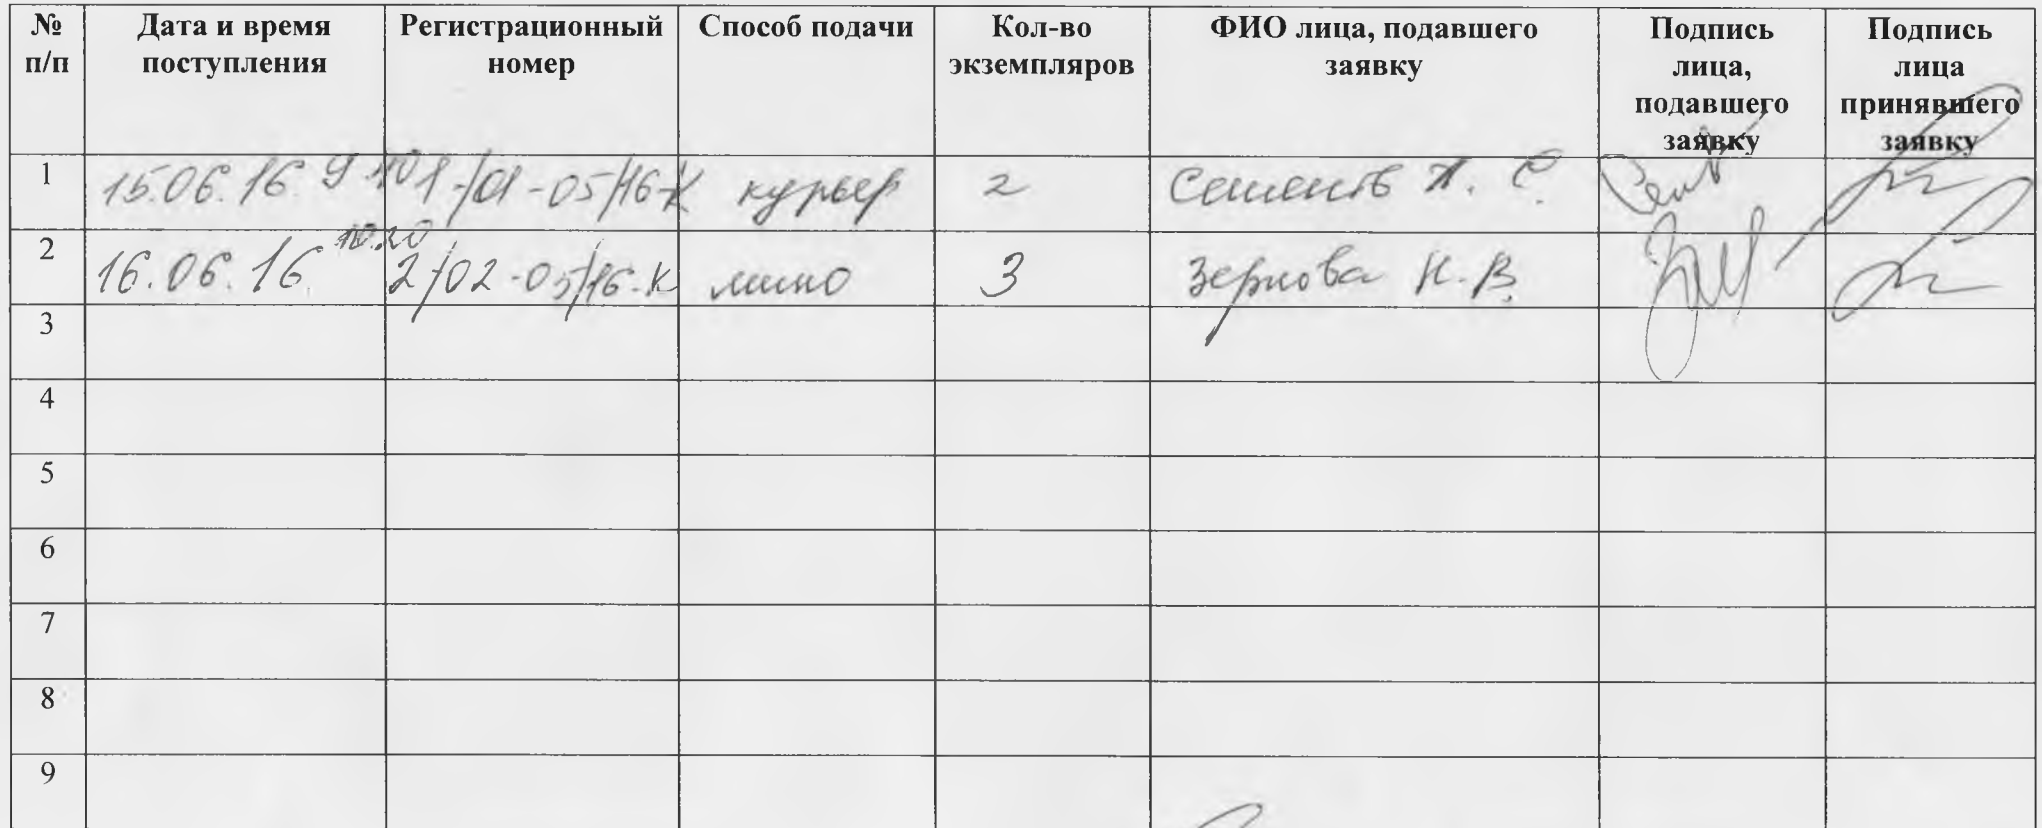 № п/п Дата и время поступления Регистрационный номер Способ подачи Кол-во экземпляров ФИО лица, подавшего заявку Подпись лица, подавшего заявку Подпись лица принявшего заявку
1 15.06.16 9 10 1-/01-05/16-К курьер 2 Семенов А. С.
2 16.06.16 10.20 2/02-05/16-К лично 3 Зернова Н.В.
3
4
5
6
7
8
9